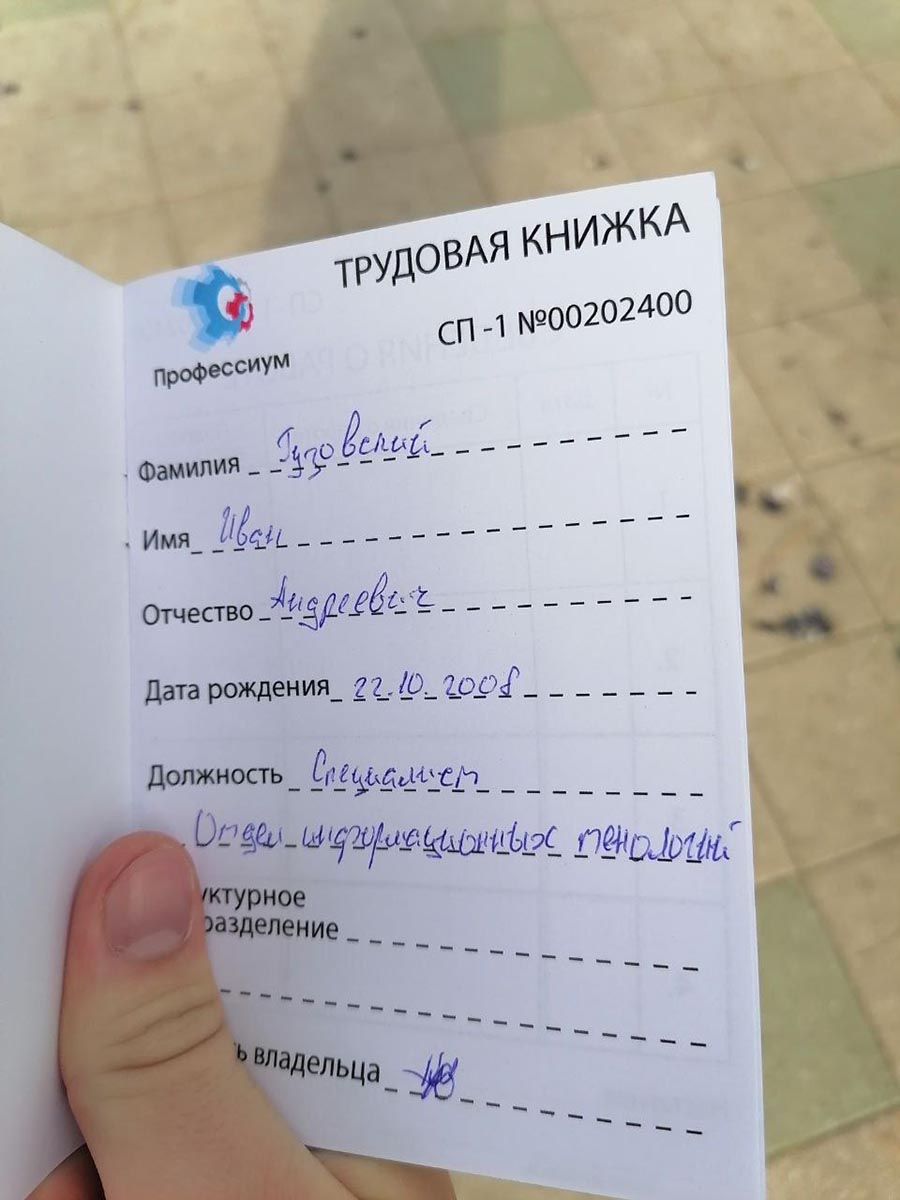 ТРУДОВАЯ КНИЖКА
СП -1 №00202400
Профессиум
Фамилия Гузовский
Имя Иван
Отчество Андреевич
Дата рождения 22.10.2008
Должность Специалист
Отдел информационных технологий
уктурное
разделение
ь владельца